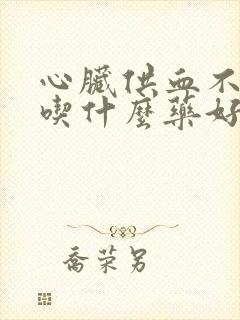 心臟供血不
喫什麼藥好
喬荣另